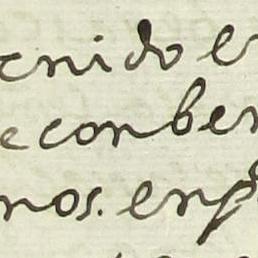 enido e
e conben
nos. en p